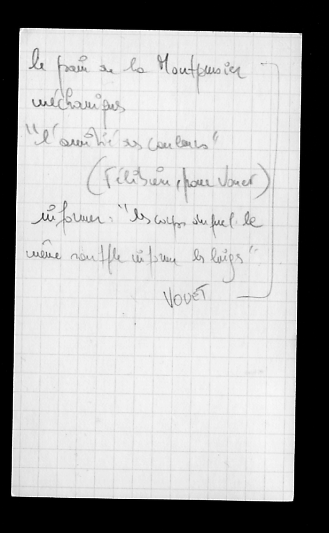 le de la Montpensier
méchaniques
"l'amitié des couleurs"
(Félibien, pour Vouet)
informer : "les corps le
même souffle informe les linges"
VOUET